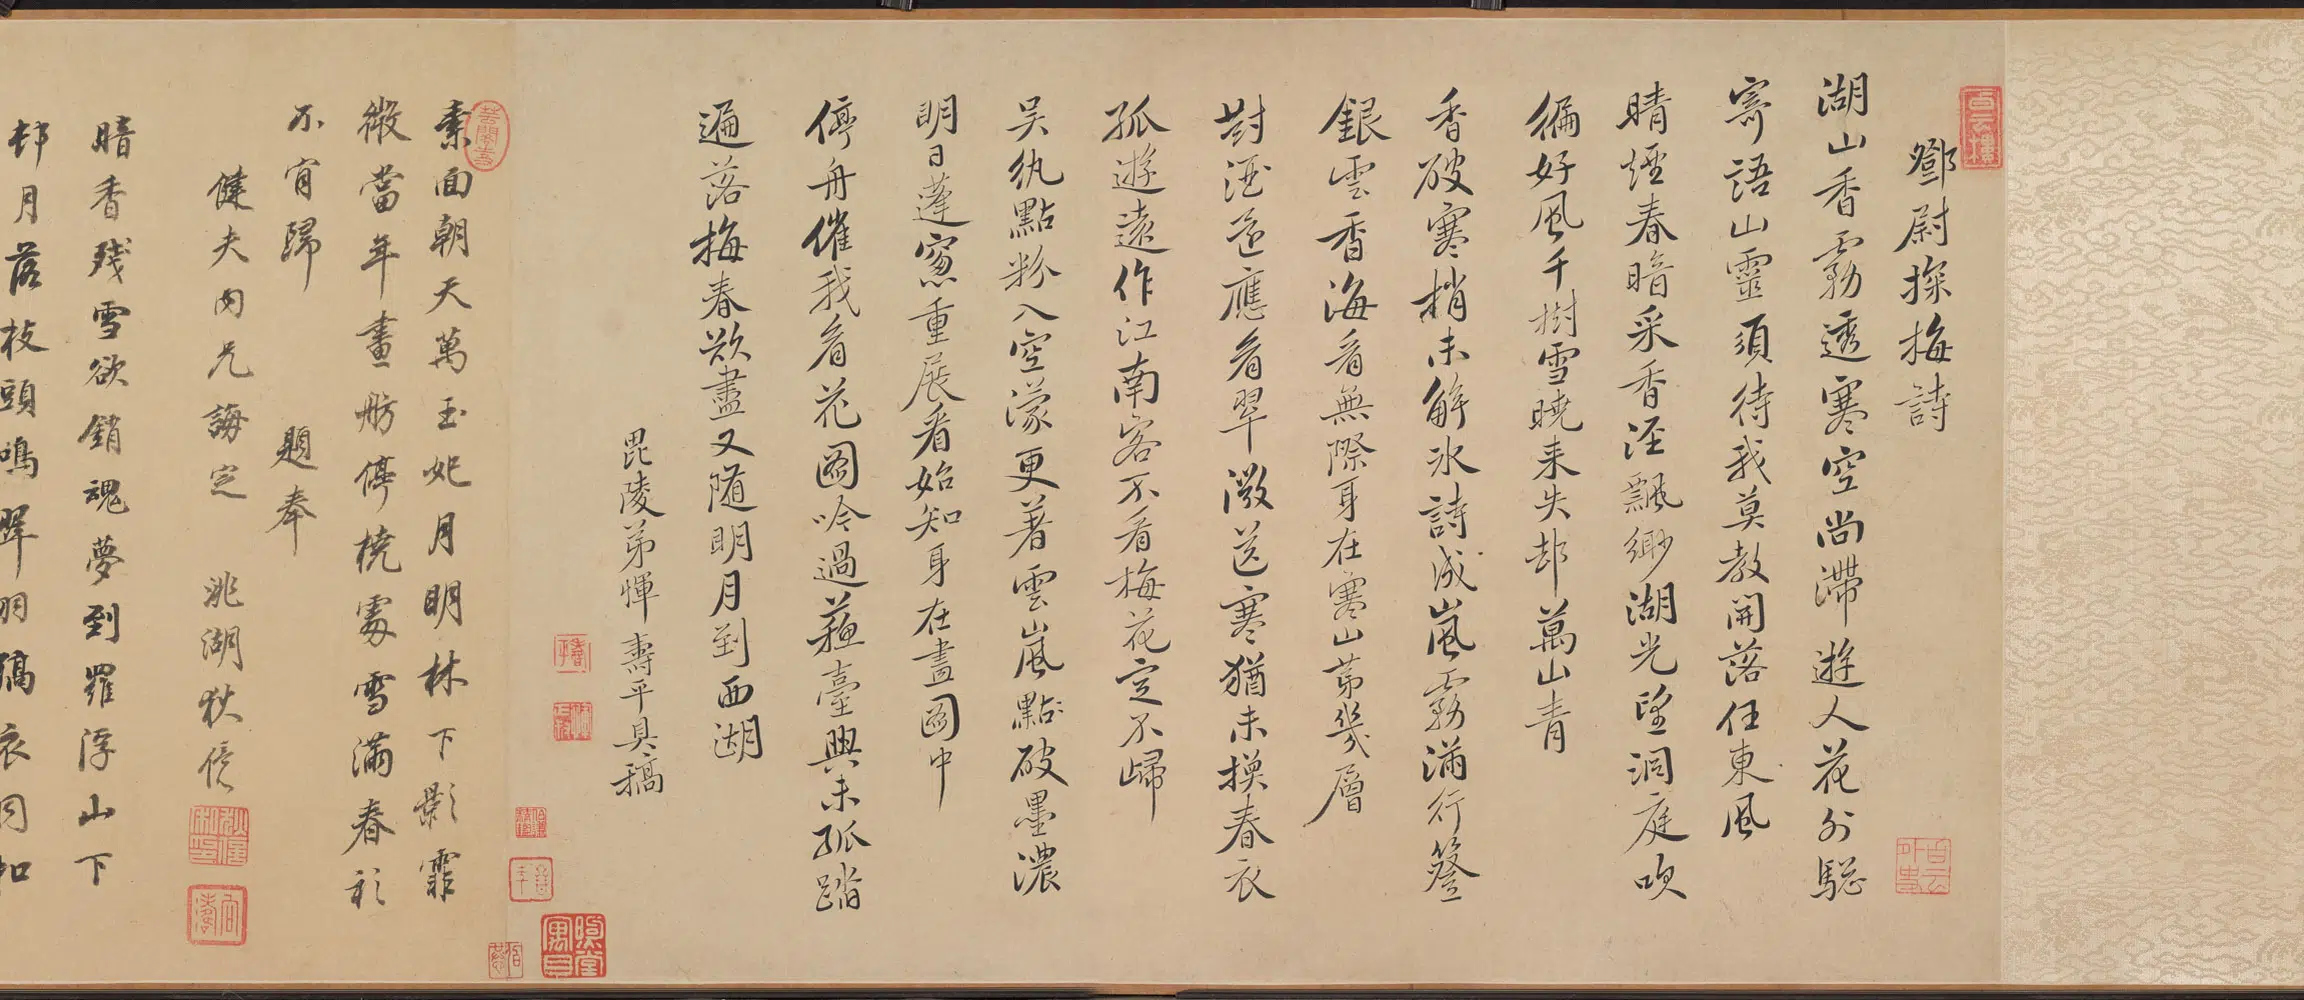 鄧尉探梅詩
湖山香霧透寒空尚滯遊人花外驄
寄語山靈須待我莫教開落任東風
晴煙春暗采香涇飄緲湖光望洞庭吹
徧好風千樹雪曉来失却萬山青
香破寒梢未解冰詩成嵐霧滿行簦
銀雲香海看無際身在寒山第幾層
對酒還應看翠微送寒猶未換春衣
孤遊遠作江南客不看梅花定不歸
吴紈點粉入空濛更著雲嵐點破墨濃
明日蓬窻重展看始知身在畫圖中
停舟催我看花圖吟過蘓臺興未孤踏
遍落梅春欲盡又随明月到西湖
毘陵弟惲壽平具稿
素面朝天萬玉妃月明林下影霏
微當年畫舫停橈處雪滿春衫
不肯歸 題奉
健夫内兄誨定 洮湖狄億
暗香殘雪欲銷魂夢到羅浮山下
邨月落枝頭鳴翠羽縞衣同